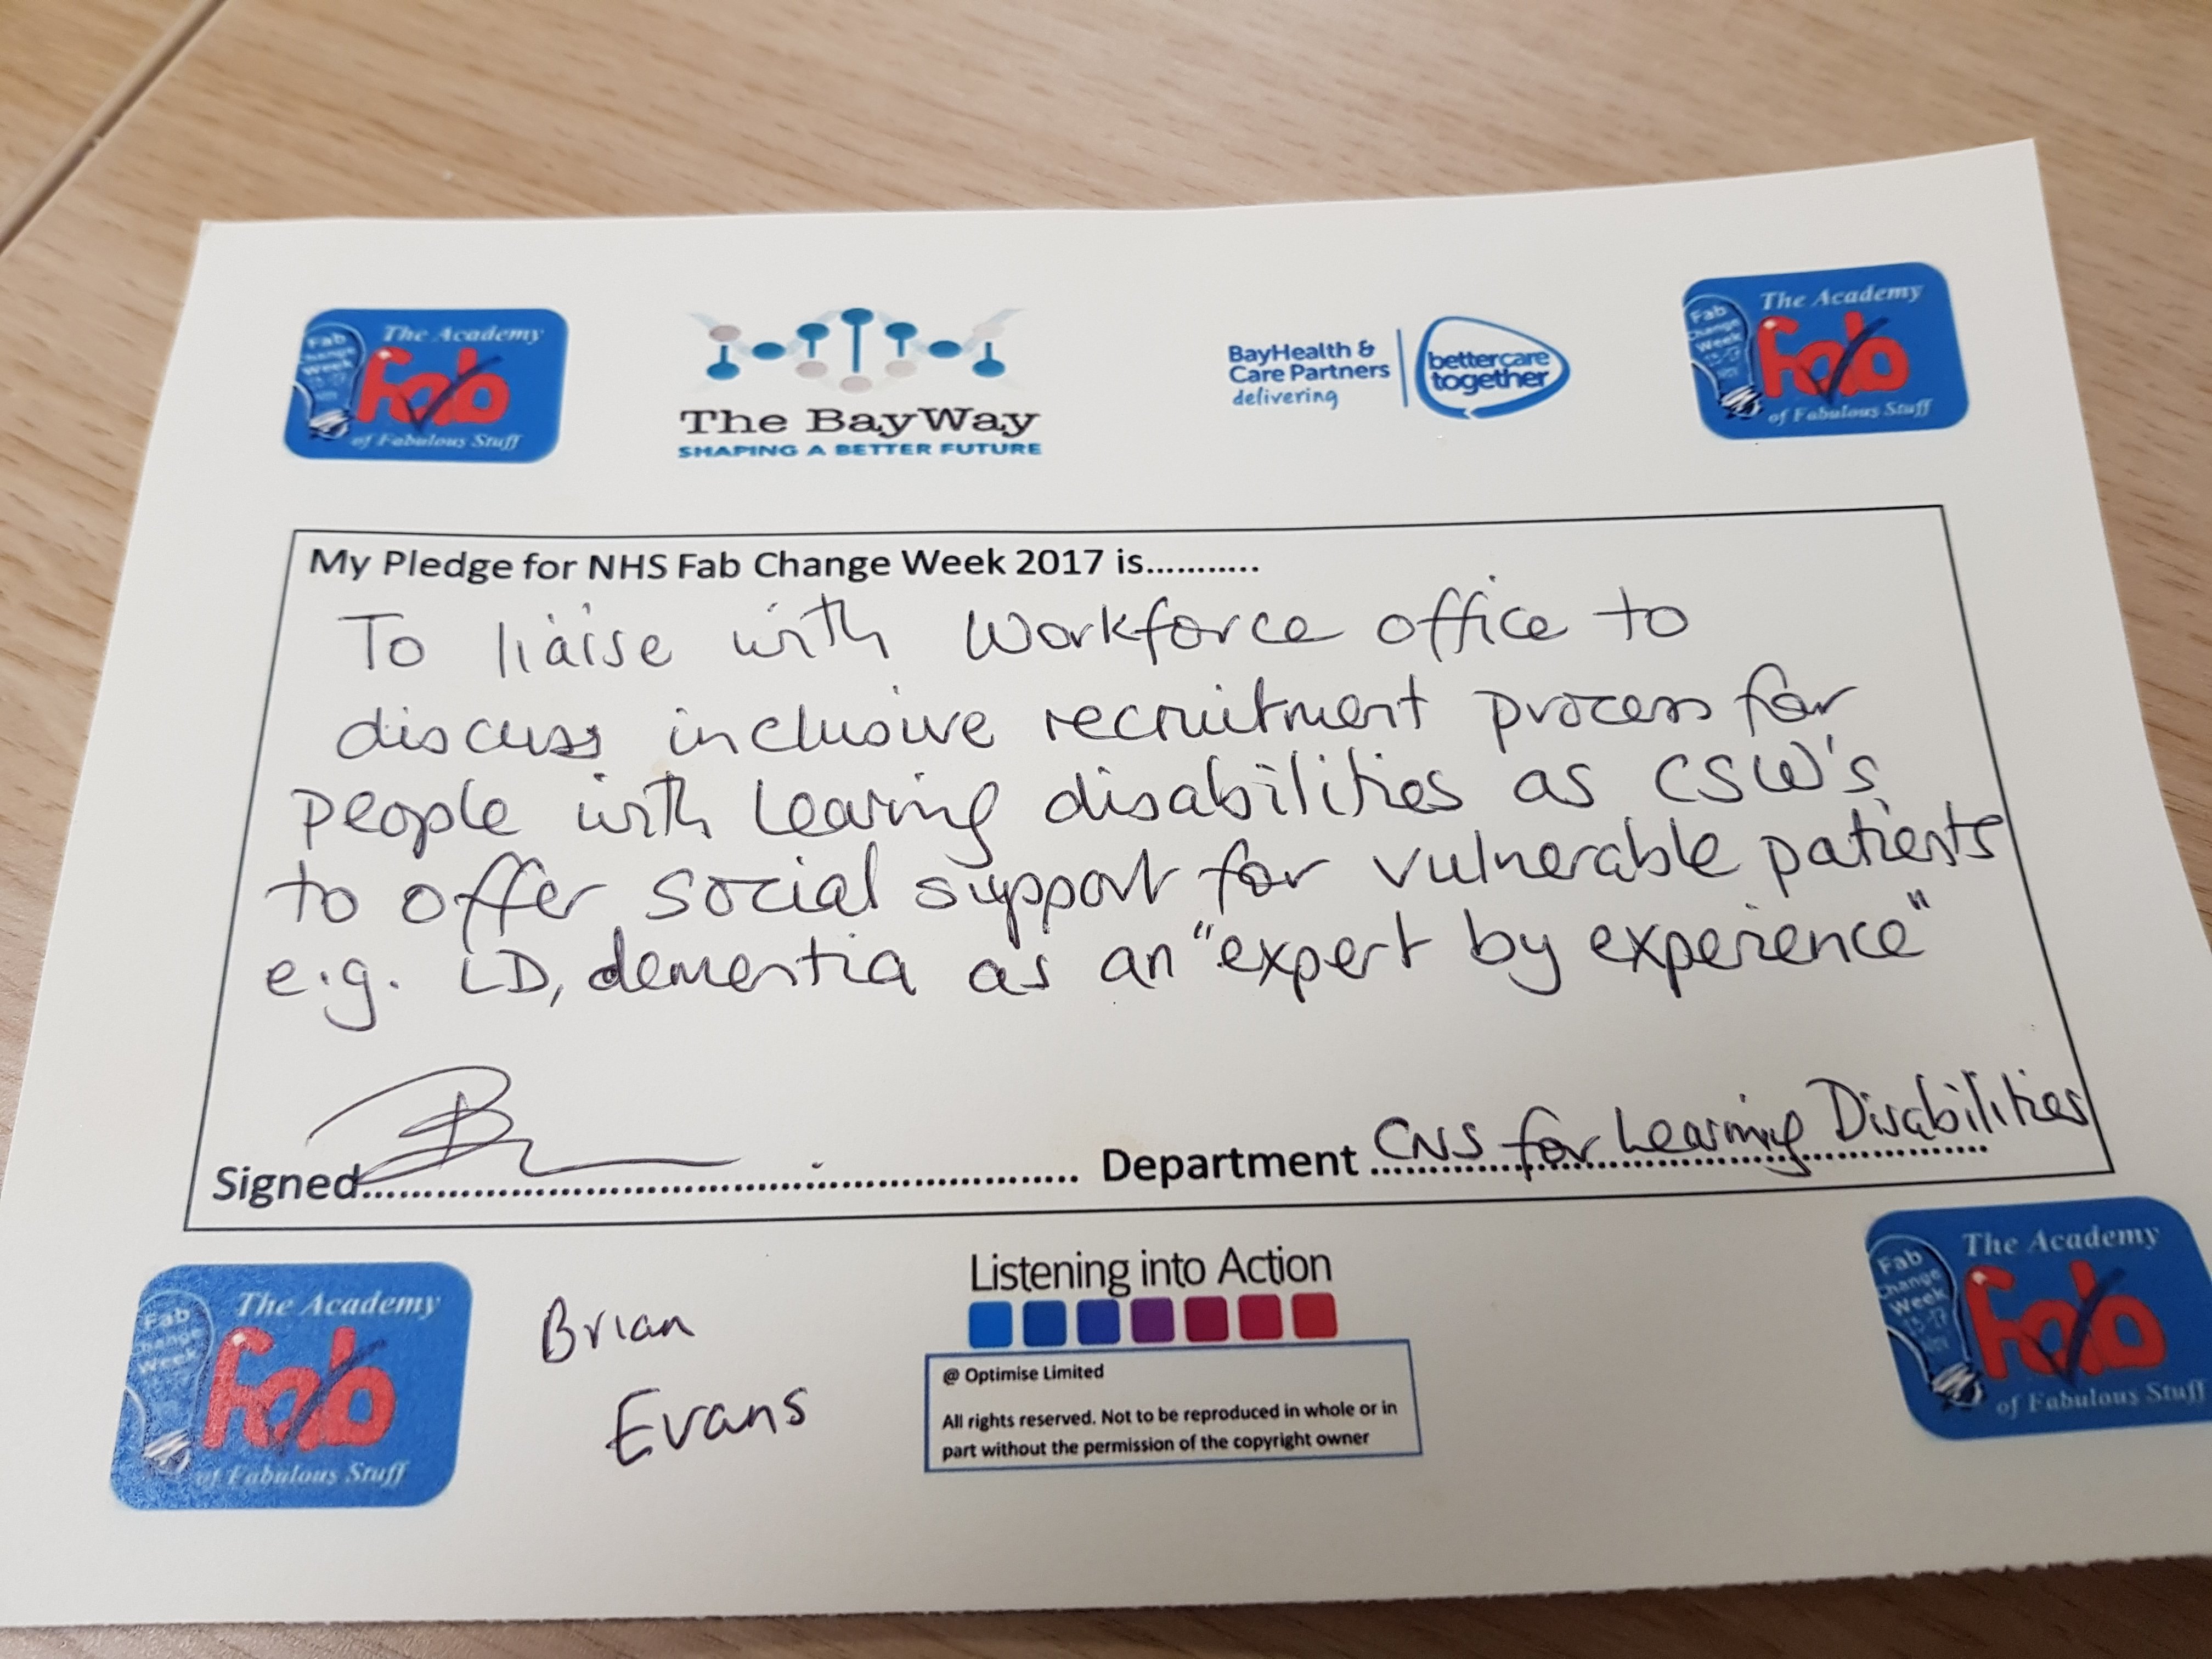 The Academy
Fab
Change
Week
Fab
of Fabulous Stuff
The BayWay
SHAPING A BETTER FUTURE
BayHealth &
Care Partners
delivering
bettercare
together
The Academy
Fab
Change
Week
Fab
of Fabulous Stuff
My Pledge for NHS Fab Change Week 2017 is...........
To liaise with Workforce office to
discuss inclusive recruitment process for
people with Learning disabilities as CSW's
to offer social support for vulnerable patients
e.g. LD, dementia as an "expert by experience"
Signed............................................................ Department CNS for Learning Disabilities
The Academy
Fab
Change
Week
Fab
of Fabulous Stuff
Brian
Evans
Listening into Action
@ Optimise Limited
All rights reserved. Not to be reproduced in whole or in
part without the permission of the copyright owner
The Academy
Fab
Change
Week
Fab
of Fabulous Stuff